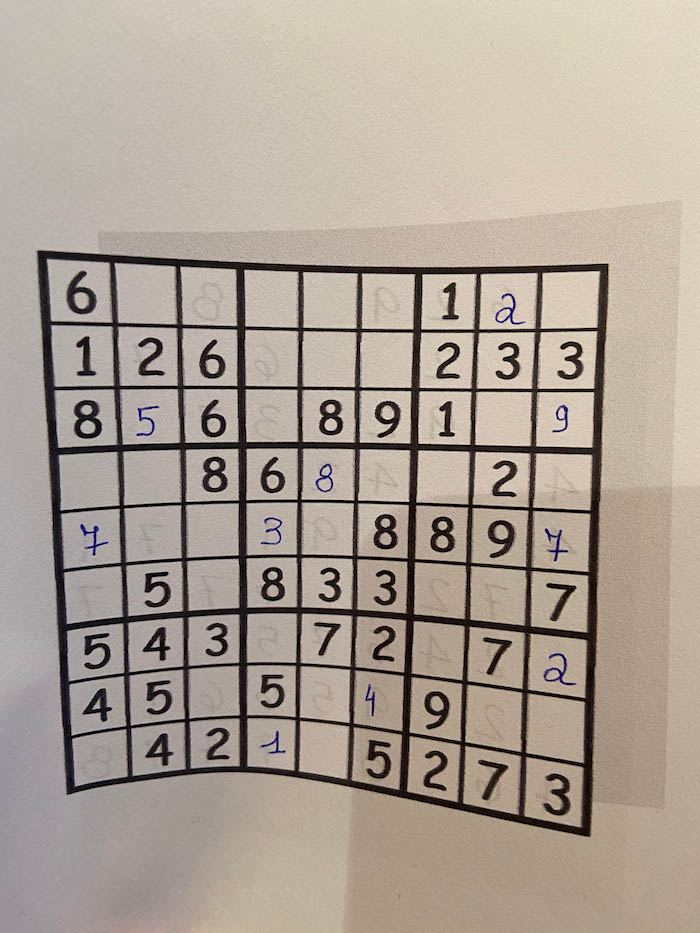 6 1 2
1 2 6 2 3 3
8 5 6 8 9 1 9
8 6 8 2
7 3 8 8 9 7
5 8 3 3 7
5 4 3 7 2 7 2
4 5 5 4 9
4 2 1 5 2 7 3